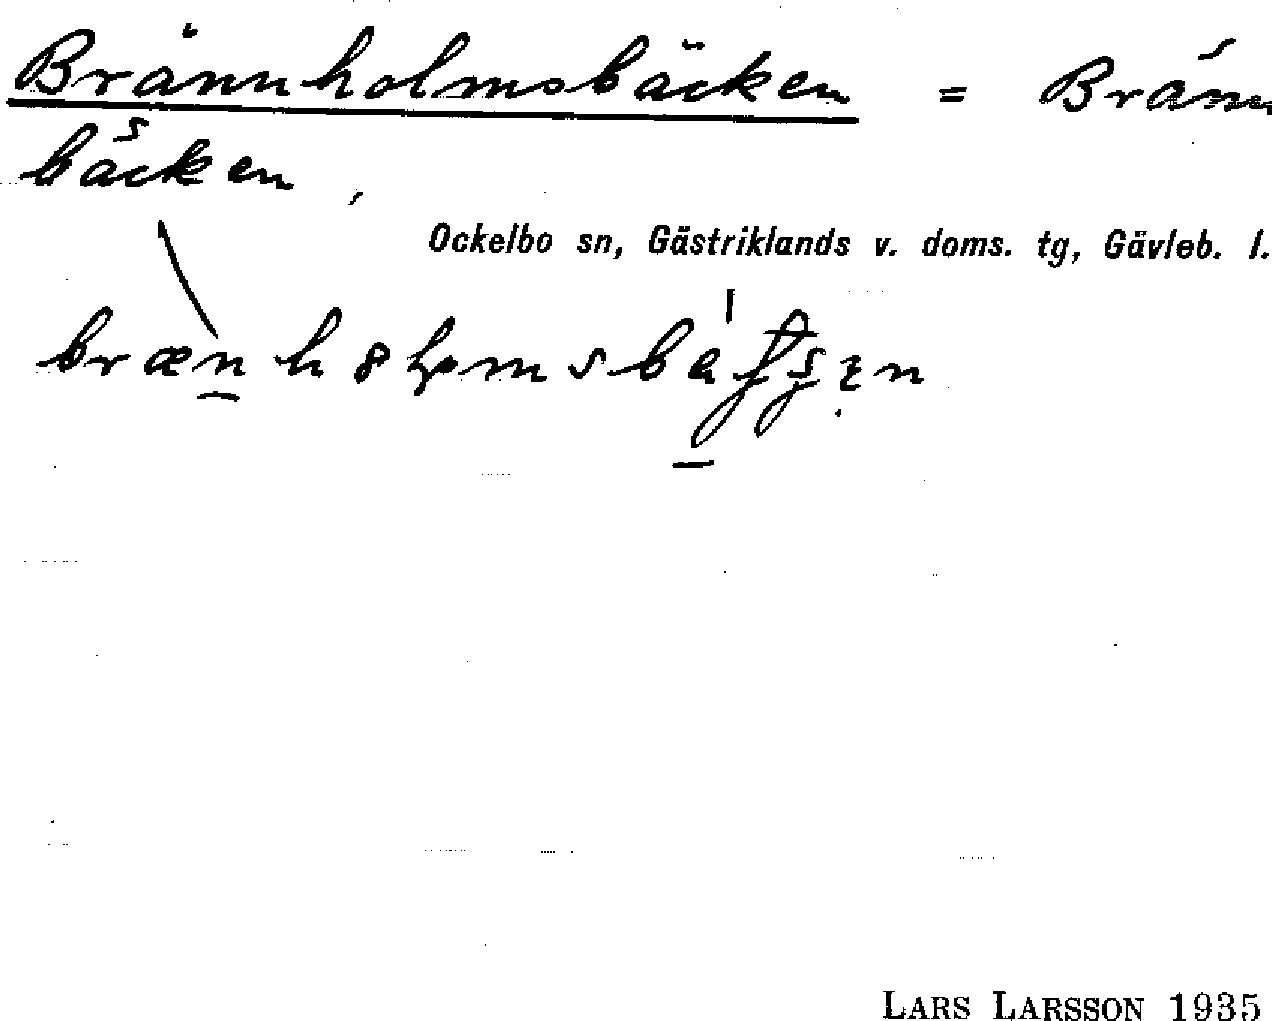 Brännholmsbäcken = Bränn
bäcken,
Ockelbo sn, Gästriklands v. doms. tg, Gävleb. l.
LARS LARSSON 1935